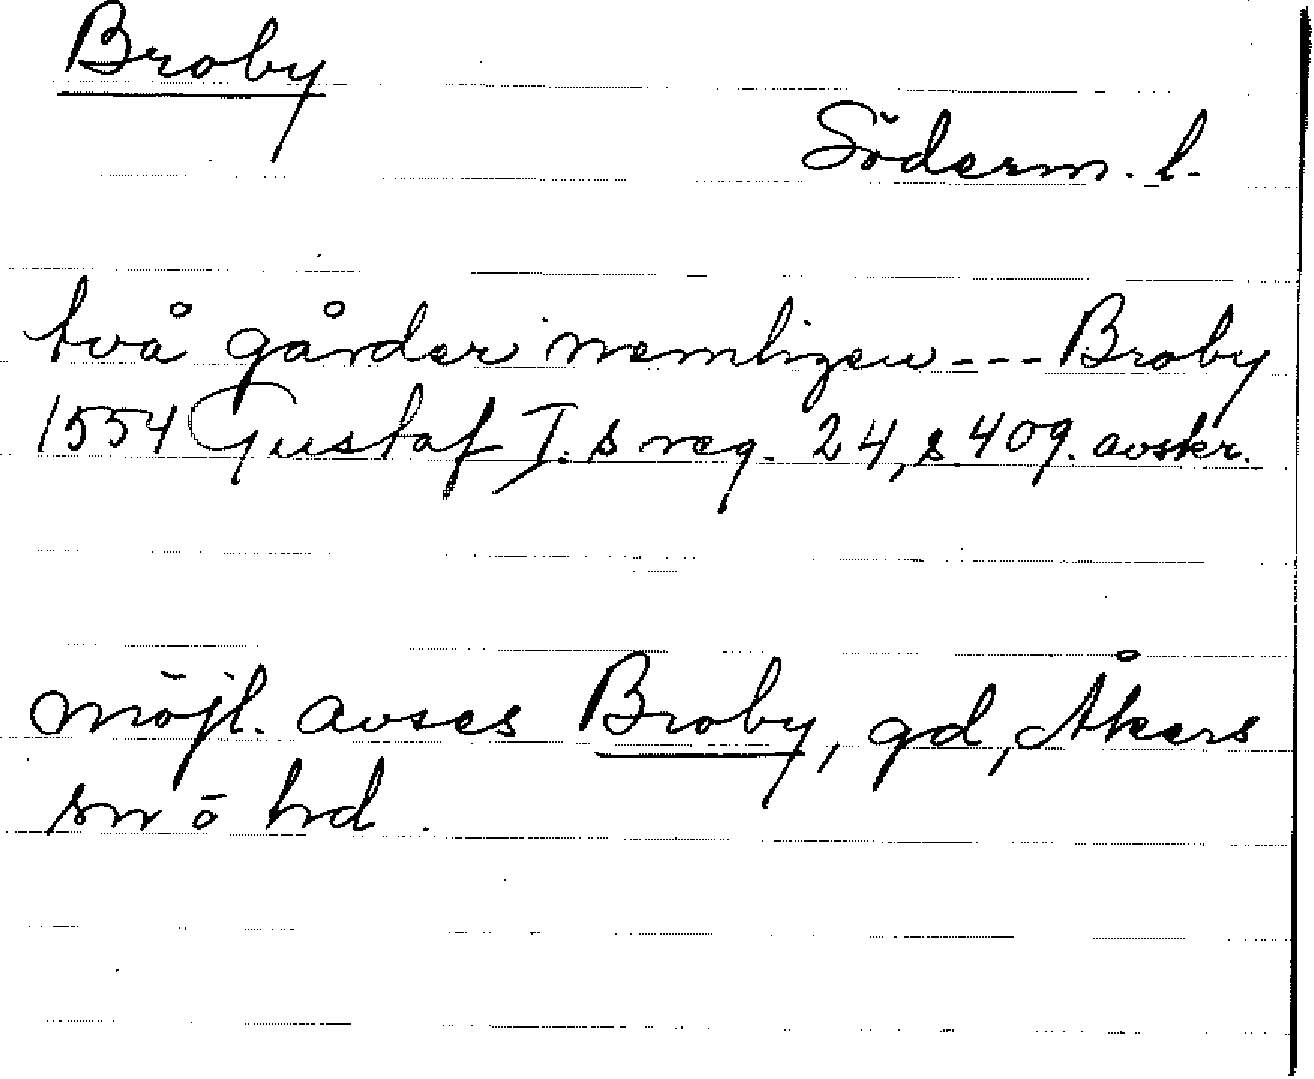 Broby
Söderm. l.
två gårder nemligen --- Broby
1554 Gustaf I. s reg. 24, s 409. avskr.
möjl. avses Broby, gd, Åkers
sn o hd.